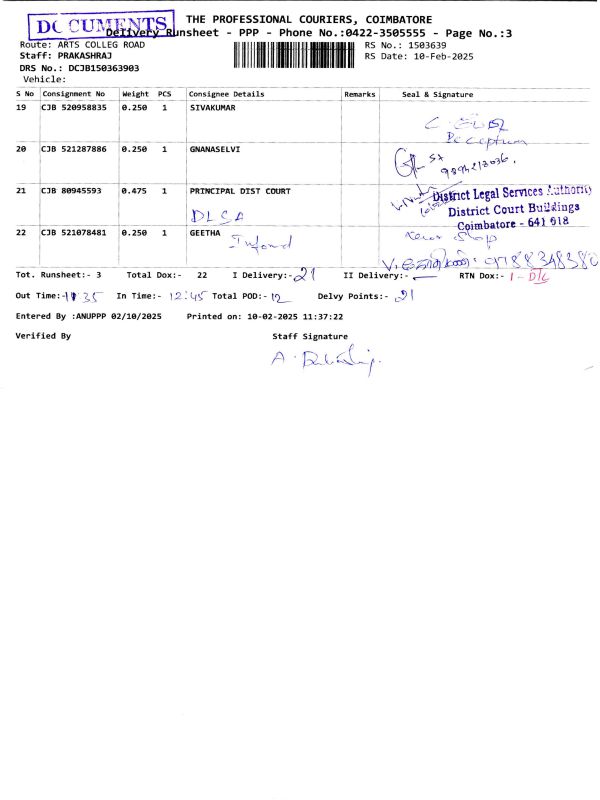 DOCUMENTS
THE PROFESSIONAL COURIERS, COIMBATORE
Delivery Runsheet - PPP - Phone No.:0422-3505555 - Page No.:3
Route: ARTS COLLEG ROAD
RS No.: 1503639
Staff: PRAKASHRAJ
RS Date: 10-Feb-2025
DRS No.: DCJB150363903
Vehicle:
S No Consignment No Weight PCS Consignee Details Remarks Seal & Signature
19 CJB 520958835 0.250 1 SIVAKUMAR
20 CJB 521287886 0.250 1 GNANASELVI
21 CJB 80945593 0.475 1 PRINCIPAL DIST COURT
DLSA
District Legal Services Authority
District Court Buildings
Coimbatore - 641 018
22 CJB 521078481 0.250 1 GEETHA
9788348380
Tot. Runsheet:- 3 Total Dox:- 22 I Delivery:- 21 II Delivery:- RTN Dox:- 1 - D/L
Out Time:- 11 35 In Time:- 12:45 Total POD:- 12 Delvy Points:- 21
Entered By :ANUPPP 02/10/2025 Printed on: 10-02-2025 11:37:22
Verified By Staff Signature